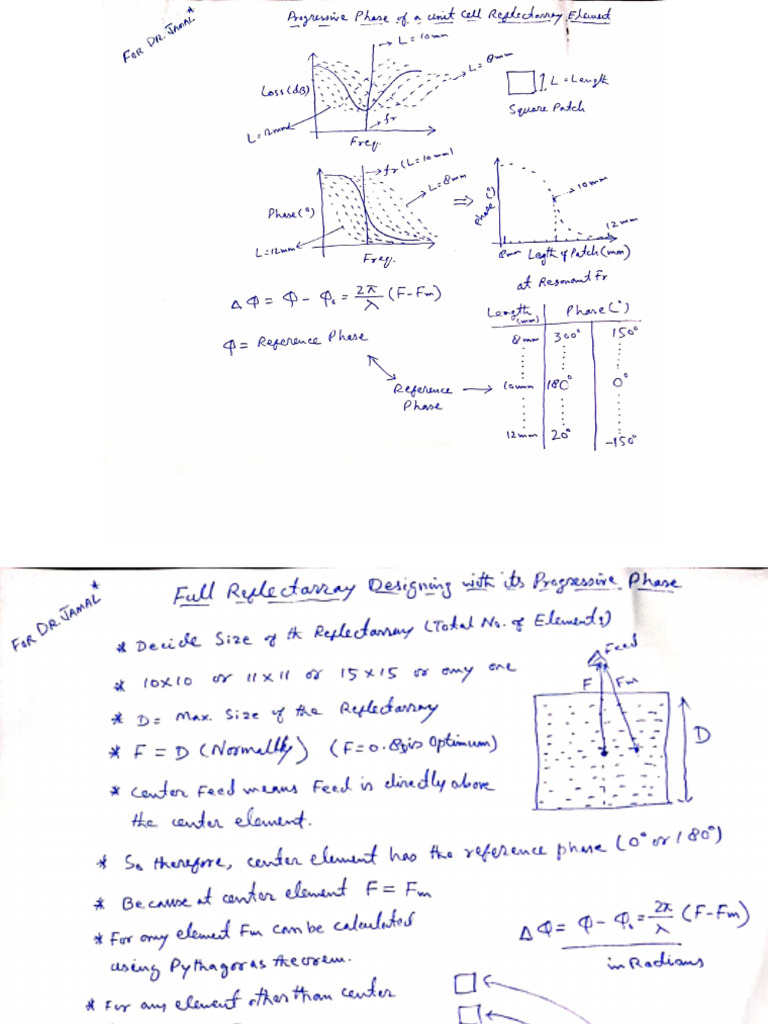 FOR DR. JAMAL*
Progressive Phase of a unit Cell Reflectarray Element
L = 10mm
L = 8mm
Loss (dB)
L = 12mm
fr
Freq.
L = Length
Square Patch
fr (L = 10mm)
L = 8mm
Phase (°)
L = 12mm
Freq.
⇒
Phase (°)
10mm
12mm
8mm Legth of Patch (mm)
at Resonant Fr
ΔΦ = Φ - Φ₁ = 2π/λ (F-Fm)
Φ = Reference Phase
Reference Phase
Length (mm) Phase (°)
8mm 300° 150°
10mm 180° 0°
12mm 20° -150°
FOR DR. JAMAL*
Full Reflectarray Designing with its Progressive Phase
* Decide Size of th Reflectarray (Total No. of Elements)
* 10x10 or 11x11 or 15x15 or any one
* D = Max. Size of the Reflectarray
* F = D (Normally) (F = 0.8D is Optimum)
* Center Feed means Feed is directly above
the center element.
Feed
F Fm
D
* So therefore, center element has the reference phase (0° or 180°)
* Because at center element F = Fm
* For any element Fm can be calculated
using Pythagoras theorem.
ΔΦ = Φ - Φ₁ = 2π/λ (F-Fm)
in Radians
* For any element other than center